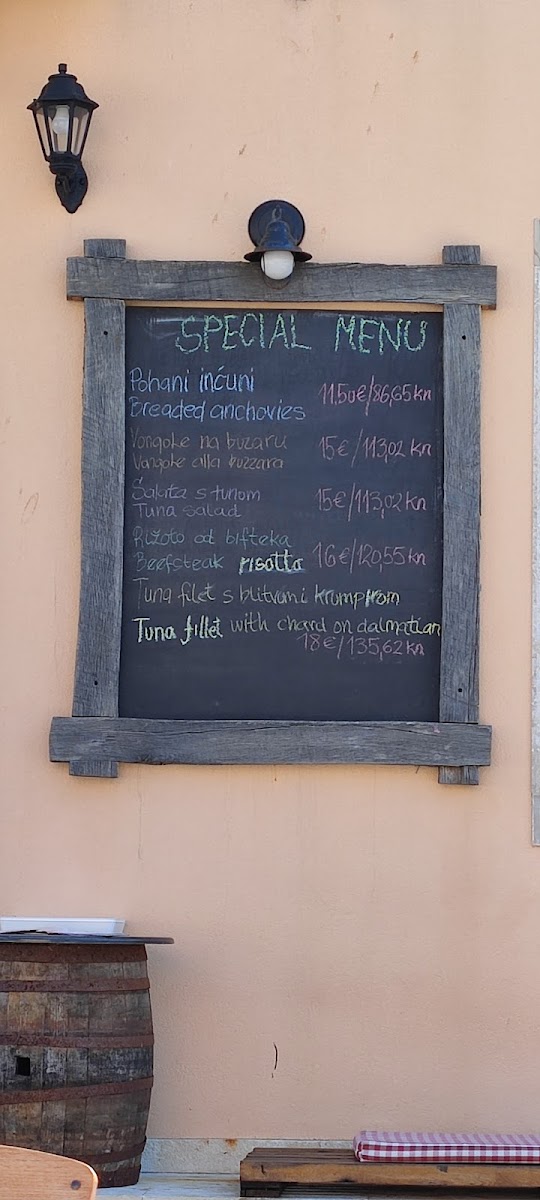 SPECIAL MENU
Pohani inćuni
Breaded anchovies 11.50€/86,65kn
Vongole na buzaru
Vongole alla buzzara 15€/113,02 kn
Salata s tunom
Tuna salad 15€/113,02 kn
Rižoto od bifteka
Beefsteak risotto 16€/120,55 kn
Tuna filet s blitvom i krumpirom
Tuna fillet with chard on dalmatian
18€/135,62 kn